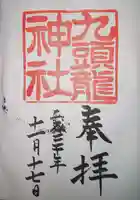 九頭龍
神社
奉拝
三十年
十一月十七日